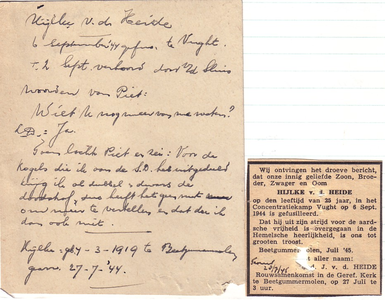 Hijlke v. d. Heide
6 september '44 gefus. te Vught.
Woorden van Piet:
Wilt U nog meer van me weten?
S.D.: Ja.
Toen lachte Piet en zei: Voor de
kogels die ik van de S.D. het
krijg ik
om meer te vertellen en dat doe ik
dan ook niet.
Hijlke geb 4-3-1919 te Beetgumermolen
27-7-'44.
Wij ontvingen het droeve bericht,
dat onze innig geliefde Zoon, Broe-
der, Zwager en Oom
HIJLKE v. d. HEIDE
op den leeftijd van 25 jaar, in het
Concentratiekamp Vught op 6 Sept.
1944 is gefusilleerd.
Dat hij uit zijn strijd voor de aard-
sche vrijheid is overgegaan in de
Hemelsche heerlijkheid, is ons tot
grooten troost.
Beetgummermolen, Juli '45.
aller naam:
J. v. d. HEIDE
Rouwsamenkomst in de Geref. Kerk
te Beetgummermolen, op 27 Juli te
3 uur.